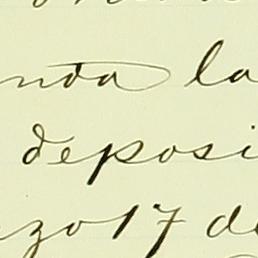 nta la
deposi
zo 17 de